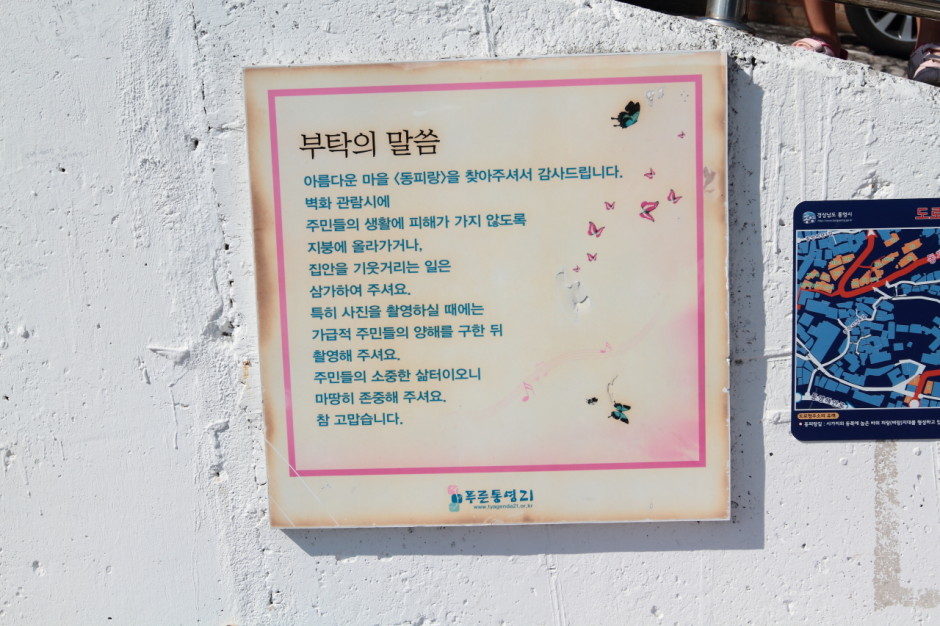 부탁의 말씀
아름다운 마을 〈동피랑〉을 찾아주셔서 감사드립니다.
벽화 관람시에
주민들의 생활에 피해가 가지 않도록
지붕에 올라가거나,
집안을 기웃거리는 일은
삼가하여 주셔요.
특히 사진을 촬영하실 때에는
가급적 주민들의 양해를 구한 뒤
촬영해 주셔요.
주민들의 소중한 삶터이오니
마땅히 존중해 주셔요.
참 고맙습니다.
푸른통영21
경상남도 통영시
도로